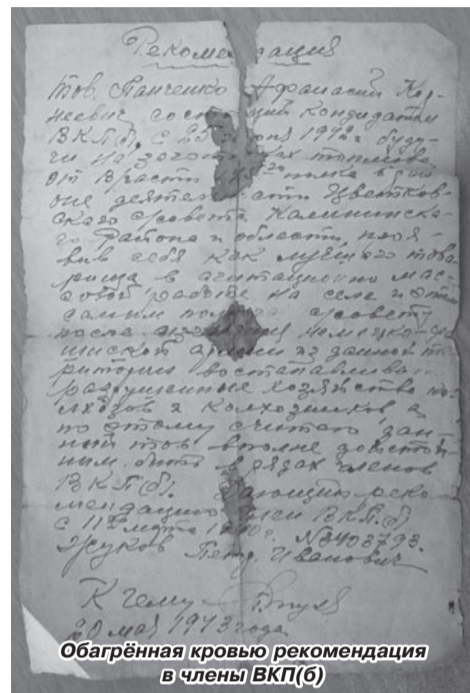 Рекомендация
тов. Панченко Афанасий Кор-
неевич, состоящий кондидатом
В.К.П.б, с 25 1942г. буду-
чи на заготовках топлива
от В/части полка в рай
оне деятельности Цветков-
ского с/совета Калининско-
го района и области, проя-
вил себя как лучшего това
рища в агитационно мас-
совой работе на селе и этим
самым с/совету
после немецко-фа
шиской армии из данной те
ритории востанавливать
разрушенные хозяйства ко-
лхозов и колхозников а
по этому считаю дан-
ный тов. вполне достой-
ным быть в рядах членов
В.К.П.(б). дающий реко
мендацию член В.К.П.б
с 11 марта №3403793.
Жуков Петр Иванович
К чему
20 мая 1943 года
Обагрённая кровью рекомендация
в члены ВКП(б)